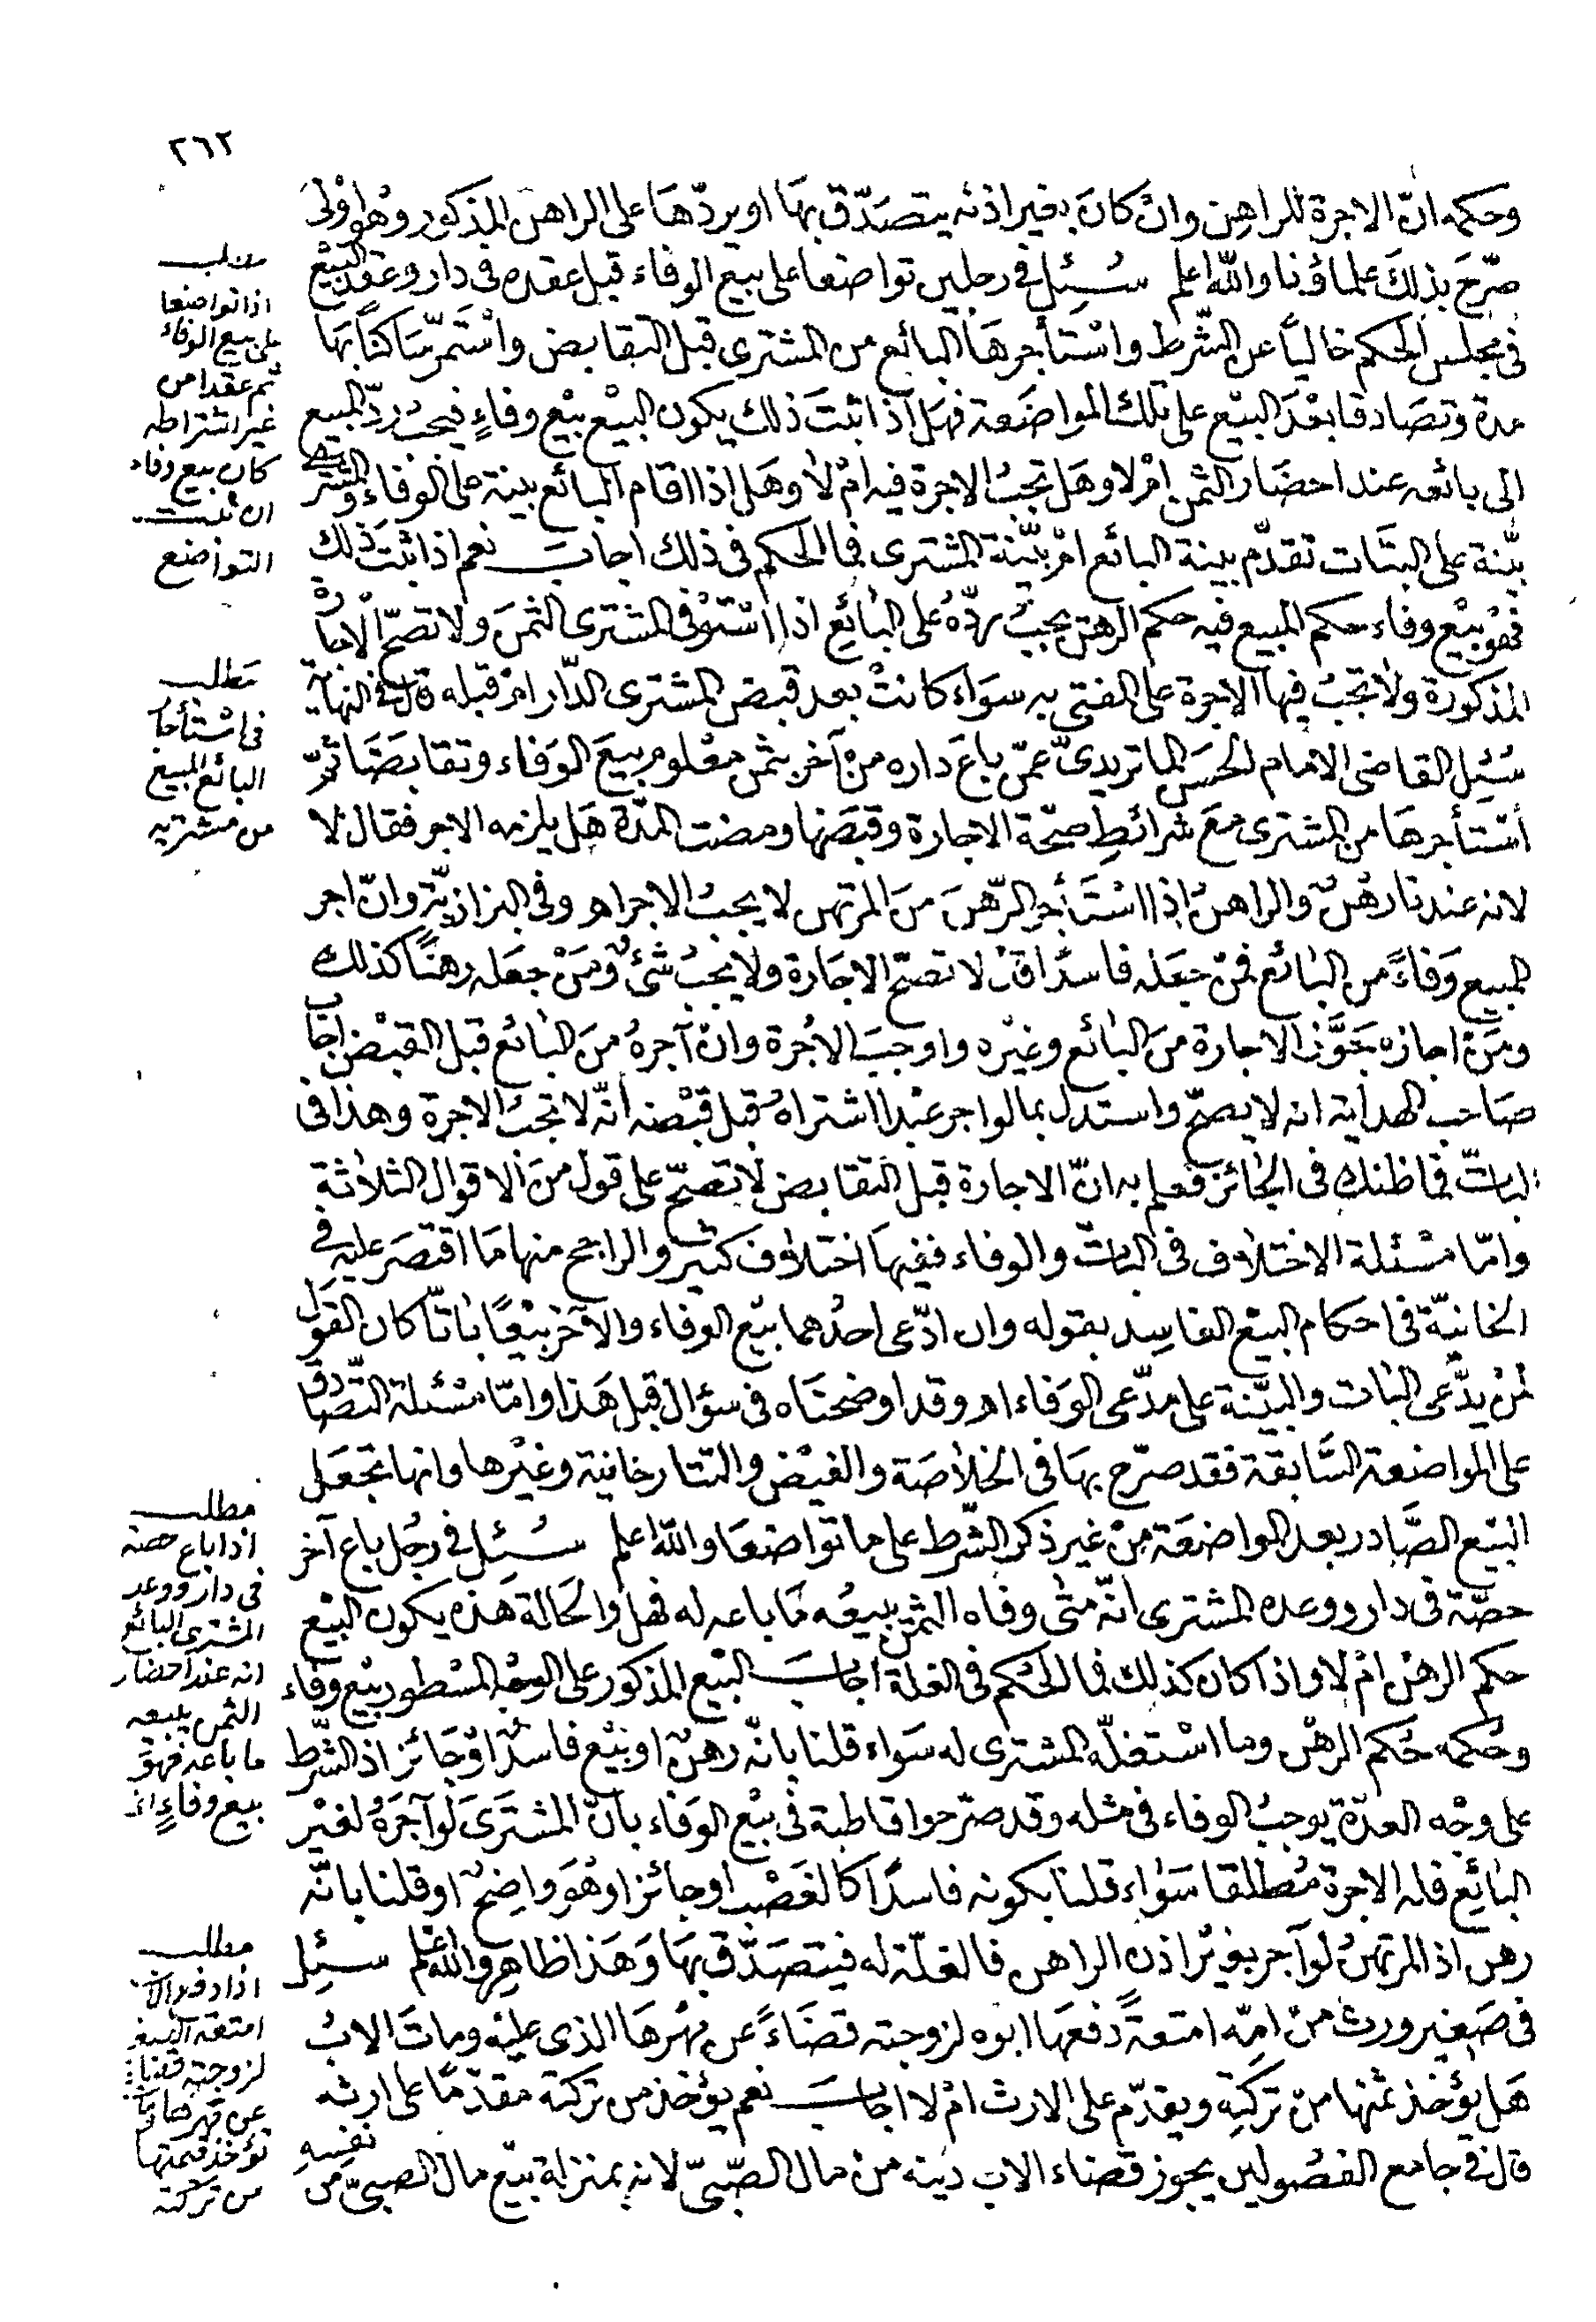 ٢٦٢
وحكمه انّ الاجرة للراهن وانْ كانَ بغير اذنه يتصَدّق بهَا او يردّهَا على الراهن المذكور وهُو اوْلى
صرّحَ بذلكَ علماؤنا والله اعلم سُئِل فى رجلين تواضعا على بيع الوفاء قبل عقده فى دار وعقد البيْع
فى مجلس الحكم خاليًا عن الشّرط واسْتأجرهَا البائع من المشترى قبل التقابض واسْتمرّ ساكنًا بهَا
مدة وتصَادقا بعْدَ البيْع على تلك المواضَعة فهَل اذا ثبتَ ذلك يكون البيْع بيْع وفاءٍ فيجبُ ردّ المبيع
الى بائعه عند احضَار الثمن امْ لا وهَل تجبُ الاجرة فيه امْ لا وهَل اذا اقام البائع بينة على الوفاء والمشترى
بيّنة على البتَات تقدّم بينة البائع امْ بيّنة المشترى فما الحكم فى ذلك اجابَ نعم اذا ثبتَ ذلك
فهُو بيْع وفاء حكم المبيع فيه حكم الرهن يجبُ ردّهُ على البائعِ اذا اسْتوْفى المشترى الثمنَ ولا تصحّ الاجارة
المذكورة ولا تجبُ فيها الاجرة على المفتى به سوَاء كانتْ بعد قبض المشترى الدّار امْ قبله قال فى النهاية
سُئِل القاضى الامام الحسَن الماتريدىّ عمّن باعَ داره منْ آخر بثمن معْلوم بيعَ الوَفاء وتقابضَا ثمّ
اسْتأجرهَا من المشترى معَ شرائطِ صحّة الاجارة وقبضَها ومضت المدّة هَل يلزمه الاجر فقال لا
لانه عندنا رهْنٌ والراهنُ اذا اسْتَأجر الرّهنَ منَ المرتهن لا يجبُ الاجر اهـ وفى البزازيّة وانْ اجر
المبيع وَفاءً من البائع فمَنْ جعَله فاسدًا قال لا تصحّ الاجَارة ولا يجبُ شئٌ ومَنْ جعَله رهنًا كذلك
ومَنْ اجازه جَوَّز الاجارة منَ البائع وغيْره واوجَبَ الاجْرة وانْ آجرهُ منَ البائع قبل القبْض اجابَ
صَاحب الهداية انه لا يصحّ واستدل بما لو اجر عبْدا اشتراهُ قبل قبْضه انّه لا تجبُ الاجرة وهذا فى
الباتّ فما ظنك فى الجائز فعلم به انّ الاجارة قبل التقابض لا تصحّ على قول منَ الاقوال الثلاثة
وامّا مسْئلة الاختلاف فى الباتّ والوفاء ففيهَا اختلاف كثير والراجح منها مَا اقتصَر عليه فى
الخانيّة فى احكام البيْع الفاسِد بقوله وان ادّعى احدُهما بيْع الوفاء والآخر بيْعًا باتّا كان القوْل
لمنْ يدّعى البات والبيّنة على مدّعى الوَفاء اهـ وقد اوضحنَاه فى سؤال قبل هَذا وامّا مسْئلة التّصَادق
على المواضعة السَّابقة فقد صرّح بهَا فى الخلاصَة والفيْض والتتارخانية وغيْرها وانها تجْعَل
البيْع الصَّادر بعد المواضعَة منْ غير ذكر الشّرط على ما تواضعَا والله اعلم سُئِل فى رجُل باع آخر
حصّة فى دار ووعده المشترى انّه متى وفاه الثمن يبيعُه مَا باعه له فهل والحَالة هَذه يكون البيْع
حكم الرهْن امْ لا واذا كان كذلك فما الحُكم فى الغلة اجابَ البيْع المذكور على الوجه المسْطور بيْع وفَاء
وحُكمه حُكم الرهْن وما اسْتغلّه المشترى له سَواء قلنا بانّه رهنٌ او بيْع فاسدٌ اوْ جَائز اذ الشّرط
على وجْه العدّة يوجبُ الوفاء فى مثله وقد صرّحوا قاطبة فى بيْع الوَفاء بانّ المشترَى لو آجرَهُ لغيْر
البائِع فله الاجرة مُطلقا سَواء قلنا بكونه فاسدًا كالغصْب او جائز او هُوَ واضِحٌ او قلنا بانّه
رهن اذ المرتهنُ لو آجر بغيْر اذن الراهن فالغلّة له فيتصَدّق بهَا وهَذا ظاهر والله اعلم سئِل
فى صَغير ورث منْ امّه امتعةً دفعَها ابوه لزوجته قضَاءً عن مهْرهَا الذى عليْه وماتَ الابُ
هَل يؤخذ ثمنها منْ تركتِه ويقدّم على الارث امْ لا اجابَ نعم يؤخذ من تركته مقدّمًا على ارثه
قال فى جامع الفصُولين يجوز قضاء الاب دينه منْ مال الصّبىّ لانه بمنزلة بيْع مال الصبىّ من نفسِهِ
مطلب
اذا تواضعا
على بيع الوفاء
ثم عقدا من
غير اشتراطه
كان بيع وفاء
ان ثبت
التواضع
مَطلب
فى اسْتئجار
البائع المبيع
من مشتريه
مطلب
اذا باع حصة
فى دار ووعد
المشترى البائع
انه عند احضار
الثمن يبيعه
ما باعه فهو
بيع وفاءٍ
مطلب
اذا دفع الاب
امتعة الصغير
لزوجته قضاء
عن مهرها
تؤخذ قيمتها
من تركته